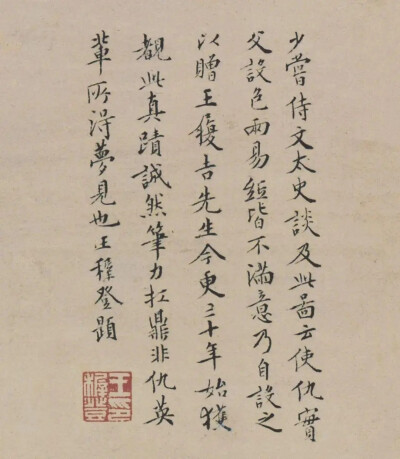 少嘗侍文太史談及此啚云使仇實
父設色兩易絹皆不滿意乃自設之
以贈王履吉先生今更三十年始獲
觀此真蹟誠然筆力扛鼎非仇英
輩所淂夢見也王穉登題